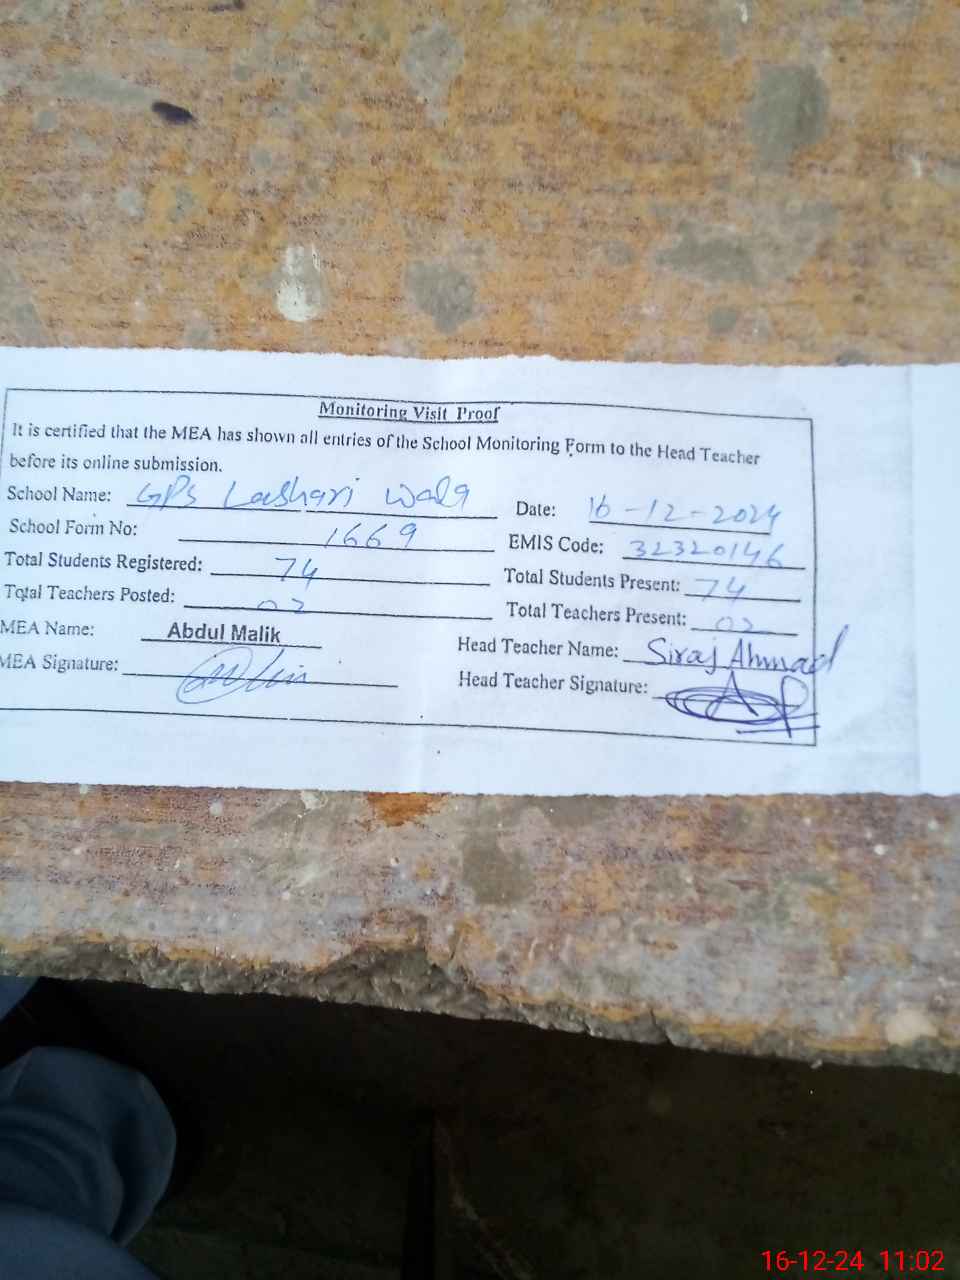 Monitoring Visit Proof
It is certified that the MEA has shown all entries of the School Monitoring Form to the Head Teacher
before its online submission.
School Name: GPS Lashari Wala Date: 16-12-2024
School Form No: 1669 EMIS Code: 32320146
Total Students Registered: 74 Total Students Present: 74
Total Teachers Posted: 02 Total Teachers Present: 02
MEA Name: Abdul Malik Head Teacher Name: Siraj Ahmad
MEA Signature: Head Teacher Signature:
16-12-24 11:02